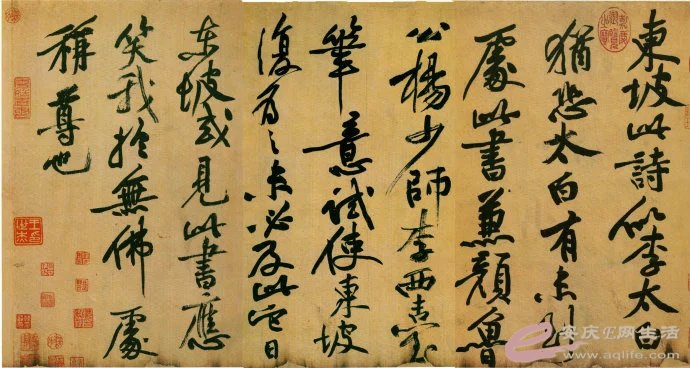 東坡此詩似李太白
猶恐太白有未到
處此書兼顏魯
公楊少師李西臺
筆意試使東坡
復為之未必及此它日
東坡或見此書應
笑我於無佛處
稱尊也
安庆E网生活
www.aqlife.com